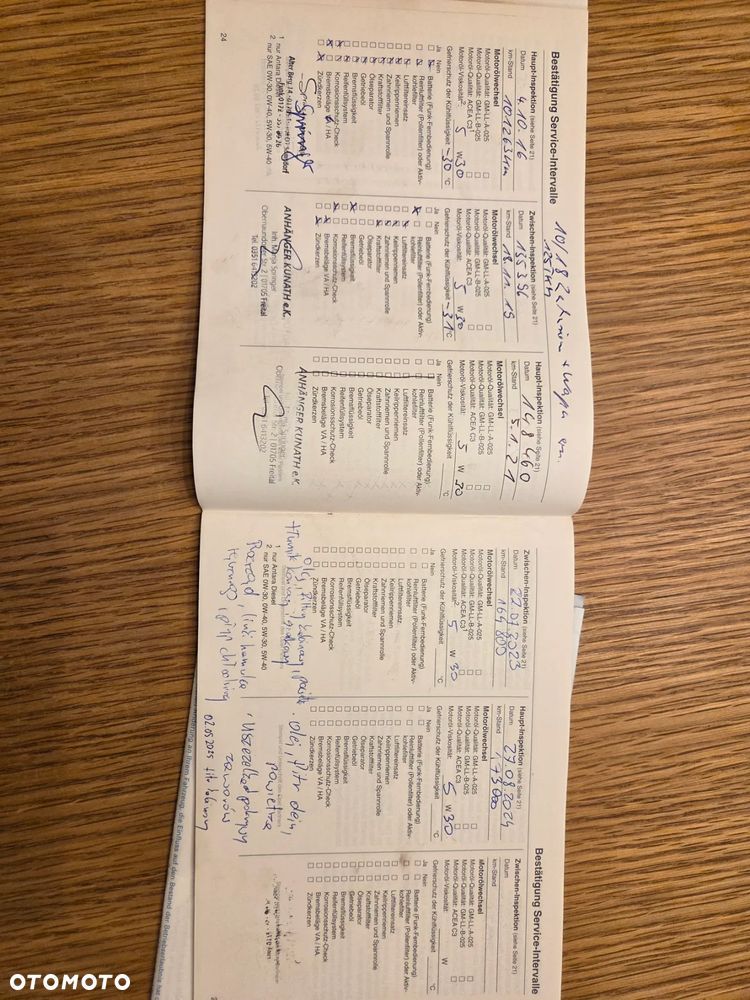 Bestätigung Service-Intervalle
Haupt-Inspektion (siehe Seite 21)
Datum 4.10.16
km-Stand 101263 km
Motorölwechsel
Motoröl-Qualität: GM-LL-A-025
Motoröl-Qualität: GM-LL-B-025
Motoröl-Qualität: ACEA C3¹
Motoröl-Viskosität² 5 W 30
Gefrierschutz der Kühlflüssigkeit -30 °C
Ja Nein
Batterie (Funk-Fernbedienung)
Reinluftfilter (Pollenfilter) oder Aktiv-
kohlefilter
Luftfiltereinsatz
Keilrippenriemen
Zahnriemen und Spannrolle
Kraftstofffilter
Ölseparator
Getriebeöl
Bremsflüssigkeit
Reifenfüllsystem
Korrosionsschutz-Check
Bremsbeläge VA / HA
Zündkerzen
1 nur Antara Diesel
2 nur SAE 0W-30, 0W-40, 5W-30, 5W-40
24
10/18 Zahnriemen + Wapu
125Tkm
Zwischen-Inspektion (siehe Seite 21)
Datum 135396
km-Stand 18.11.19
Motorölwechsel
Motoröl-Qualität: GM-LL-A-025
Motoröl-Qualität: GM-LL-B-025
Motoröl-Qualität: ACEA C3
Motoröl-Viskosität: 5 W 30
Gefrierschutz der Kühlflüssigkeit -31 °C
Ja Nein
Batterie (Funk-Fernbedienung)
Reinluftfilter (Pollenfilter) oder Aktiv-
kohlefilter
Luftfiltereinsatz
Keilrippenriemen
Zahnriemen und Spannrolle
Kraftstofffilter
Ölseparator
Getriebeöl
Bremsflüssigkeit
Reifenfüllsystem
Korrosionsschutz-Check
Bremsbeläge VA / HA
Zündkerzen
ANHÄNGER KUNATH e.K.
Springer
2 | 01705 Freital
Haupt-Inspektion (siehe Seite 21)
Datum 148460
km-Stand 5.1.21
Motorölwechsel
Motoröl-Qualität: GM-LL-A-025
Motoröl-Qualität: GM-LL-B-025
Motoröl-Qualität: ACEA C3
Motoröl-Viskosität: 5 W 30
Gefrierschutz der Kühlflüssigkeit °C
Ja Nein
Batterie (Funk-Fernbedienung)
Reinluftfilter (Pollenfilter) oder Aktiv-
kohlefilter
Luftfiltereinsatz
Keilrippenriemen
Zahnriemen und Spannrolle
Kraftstofffilter
Ölseparator
Getriebeöl
Bremsflüssigkeit
Reifenfüllsystem
Korrosionsschutz-Check
Bremsbeläge VA / HA
Zündkerzen
ANHÄNGER KUNATH e.K.
2 | 01705 Freital
Bestätigung Service-Intervalle
Zwischen-Inspektion (siehe Seite 21)
Datum 22.01.2023
km-Stand 164800
Motorölwechsel
Motoröl-Qualität: GM-LL-A-025
Motoröl-Qualität: GM-LL-B-025
Motoröl-Qualität: ACEA C3¹
Motoröl-Viskosität² 5 W 30
Gefrierschutz der Kühlflüssigkeit °C
Ja Nein
Batterie (Funk-Fernbedienung)
Reinluftfilter (Pollenfilter) oder Aktiv-
kohlefilter
Luftfiltereinsatz
Keilrippenriemen
Zahnriemen und Spannrolle
Kraftstofffilter
Ölseparator
Getriebeöl
Bremsflüssigkeit
Reifenfüllsystem
Korrosionsschutz-Check
Bremsbeläge VA / HA
Zündkerzen
1 nur Antara Diesel
2 nur SAE 0W-30, 0W-40, 5W-30, 5W-40
Haupt-Inspektion (siehe Seite 21)
Datum 27.08.2024
km-Stand 173000
Motorölwechsel
Motoröl-Qualität: GM-LL-A-025
Motoröl-Qualität: GM-LL-B-025
Motoröl-Qualität: ACEA C3
Motoröl-Viskosität: 5 W 30
Gefrierschutz der Kühlflüssigkeit °C
Ja Nein
Batterie (Funk-Fernbedienung)
Reinluftfilter (Pollenfilter) oder Aktiv-
kohlefilter
Luftfiltereinsatz
Keilrippenriemen
Zahnriemen und Spannrolle
Kraftstofffilter
Ölseparator
Getriebeöl
Bremsflüssigkeit
Reifenfüllsystem
Korrosionsschutz-Check
Bremsbeläge VA / HA
Olej, filtr oleju,
powietrza
Uszczelka pokrywy
zaworów
02.05.2025 filtr kabinowy
Zwischen-Inspektion (siehe Seite 21)
Datum
km-Stand
Motorölwechsel
Motoröl-Qualität: GM-LL-A-025
Motoröl-Qualität: GM-LL-B-025
Motoröl-Qualität: ACEA C3
Motoröl-Viskosität: W
Gefrierschutz der Kühlflüssigkeit °C
Ja Nein
Batterie (Funk-Fernbedienung)
Reinluftfilter (Pollenfilter) oder Aktiv-
kohlefilter
Luftfiltereinsatz
Keilrippenriemen
Zahnriemen und Spannrolle
Kraftstofffilter
Ölseparator
Getriebeöl
Bremsflüssigkeit
Reifenfüllsystem
Korrosionsschutz-Check
Bremsbeläge VA / HA
Zündkerzen
an Ihrem Fahrzeug, die Einfluss auf den Bestand der Betriebserlaubnis
OTOMOTO